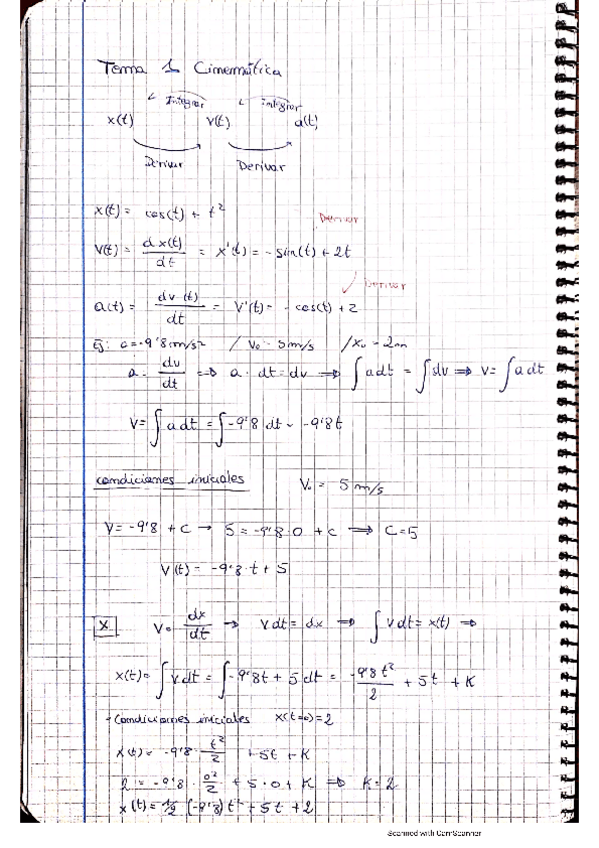 Tema 1 Cinemática
Integrar Integrar
x(t) v(t) a(t)
Derivar Derivar
x(t) = cos(t) + t²
Derivar
v(t) = dx(t)/dt = x'(t) = -sin(t) + 2t
Derivar
a(t) = dv(t)/dt = v'(t) = -cos(t) + 2
Ej: a = -9'8 m/s² / V₀ = 5m/s / X₀ = 2m
a = dv/dt ⇒ a · dt = dv ⇒ ∫a dt = ∫dv ⇒ v = ∫a dt
V = ∫a dt = ∫-9'8 dt = -9'8t
condiciones iniciales V₀ = 5 m/s
V = -9'8 + c → 5 = -9'8·0 + c ⇒ C=5
V(t) = -9'8·t + 5
x V = dx/dt → V dt = dx ⇒ ∫V dt = x(t) ⇒
x(t) = ∫V dt = ∫-9'8t + 5 dt = -9'8t²/2 + 5t + K
- Condiciones iniciales x(t=0)=2
x(t) = -9'8 · t²/2 + 5t + K
2 = -9'8 · 0²/2 + 5·0 + K ⇒ K=2
x(t) = 1/2 (-9'8) t² + 5t + 2
Scanned with CamScanner